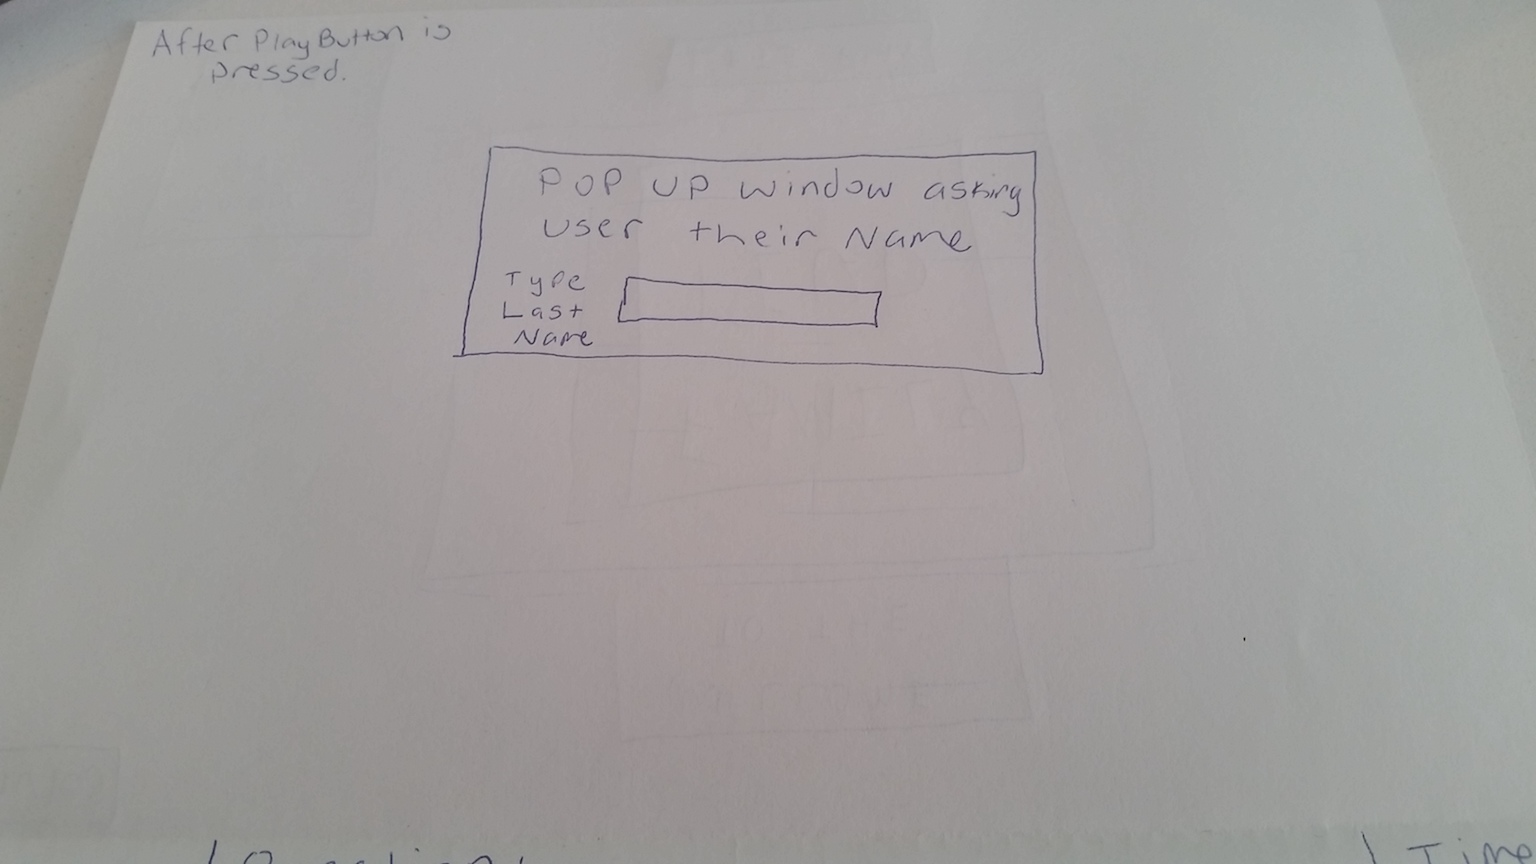 After Play Button is
pressed.
POP UP window asking
user their Name
Type
Last
Name